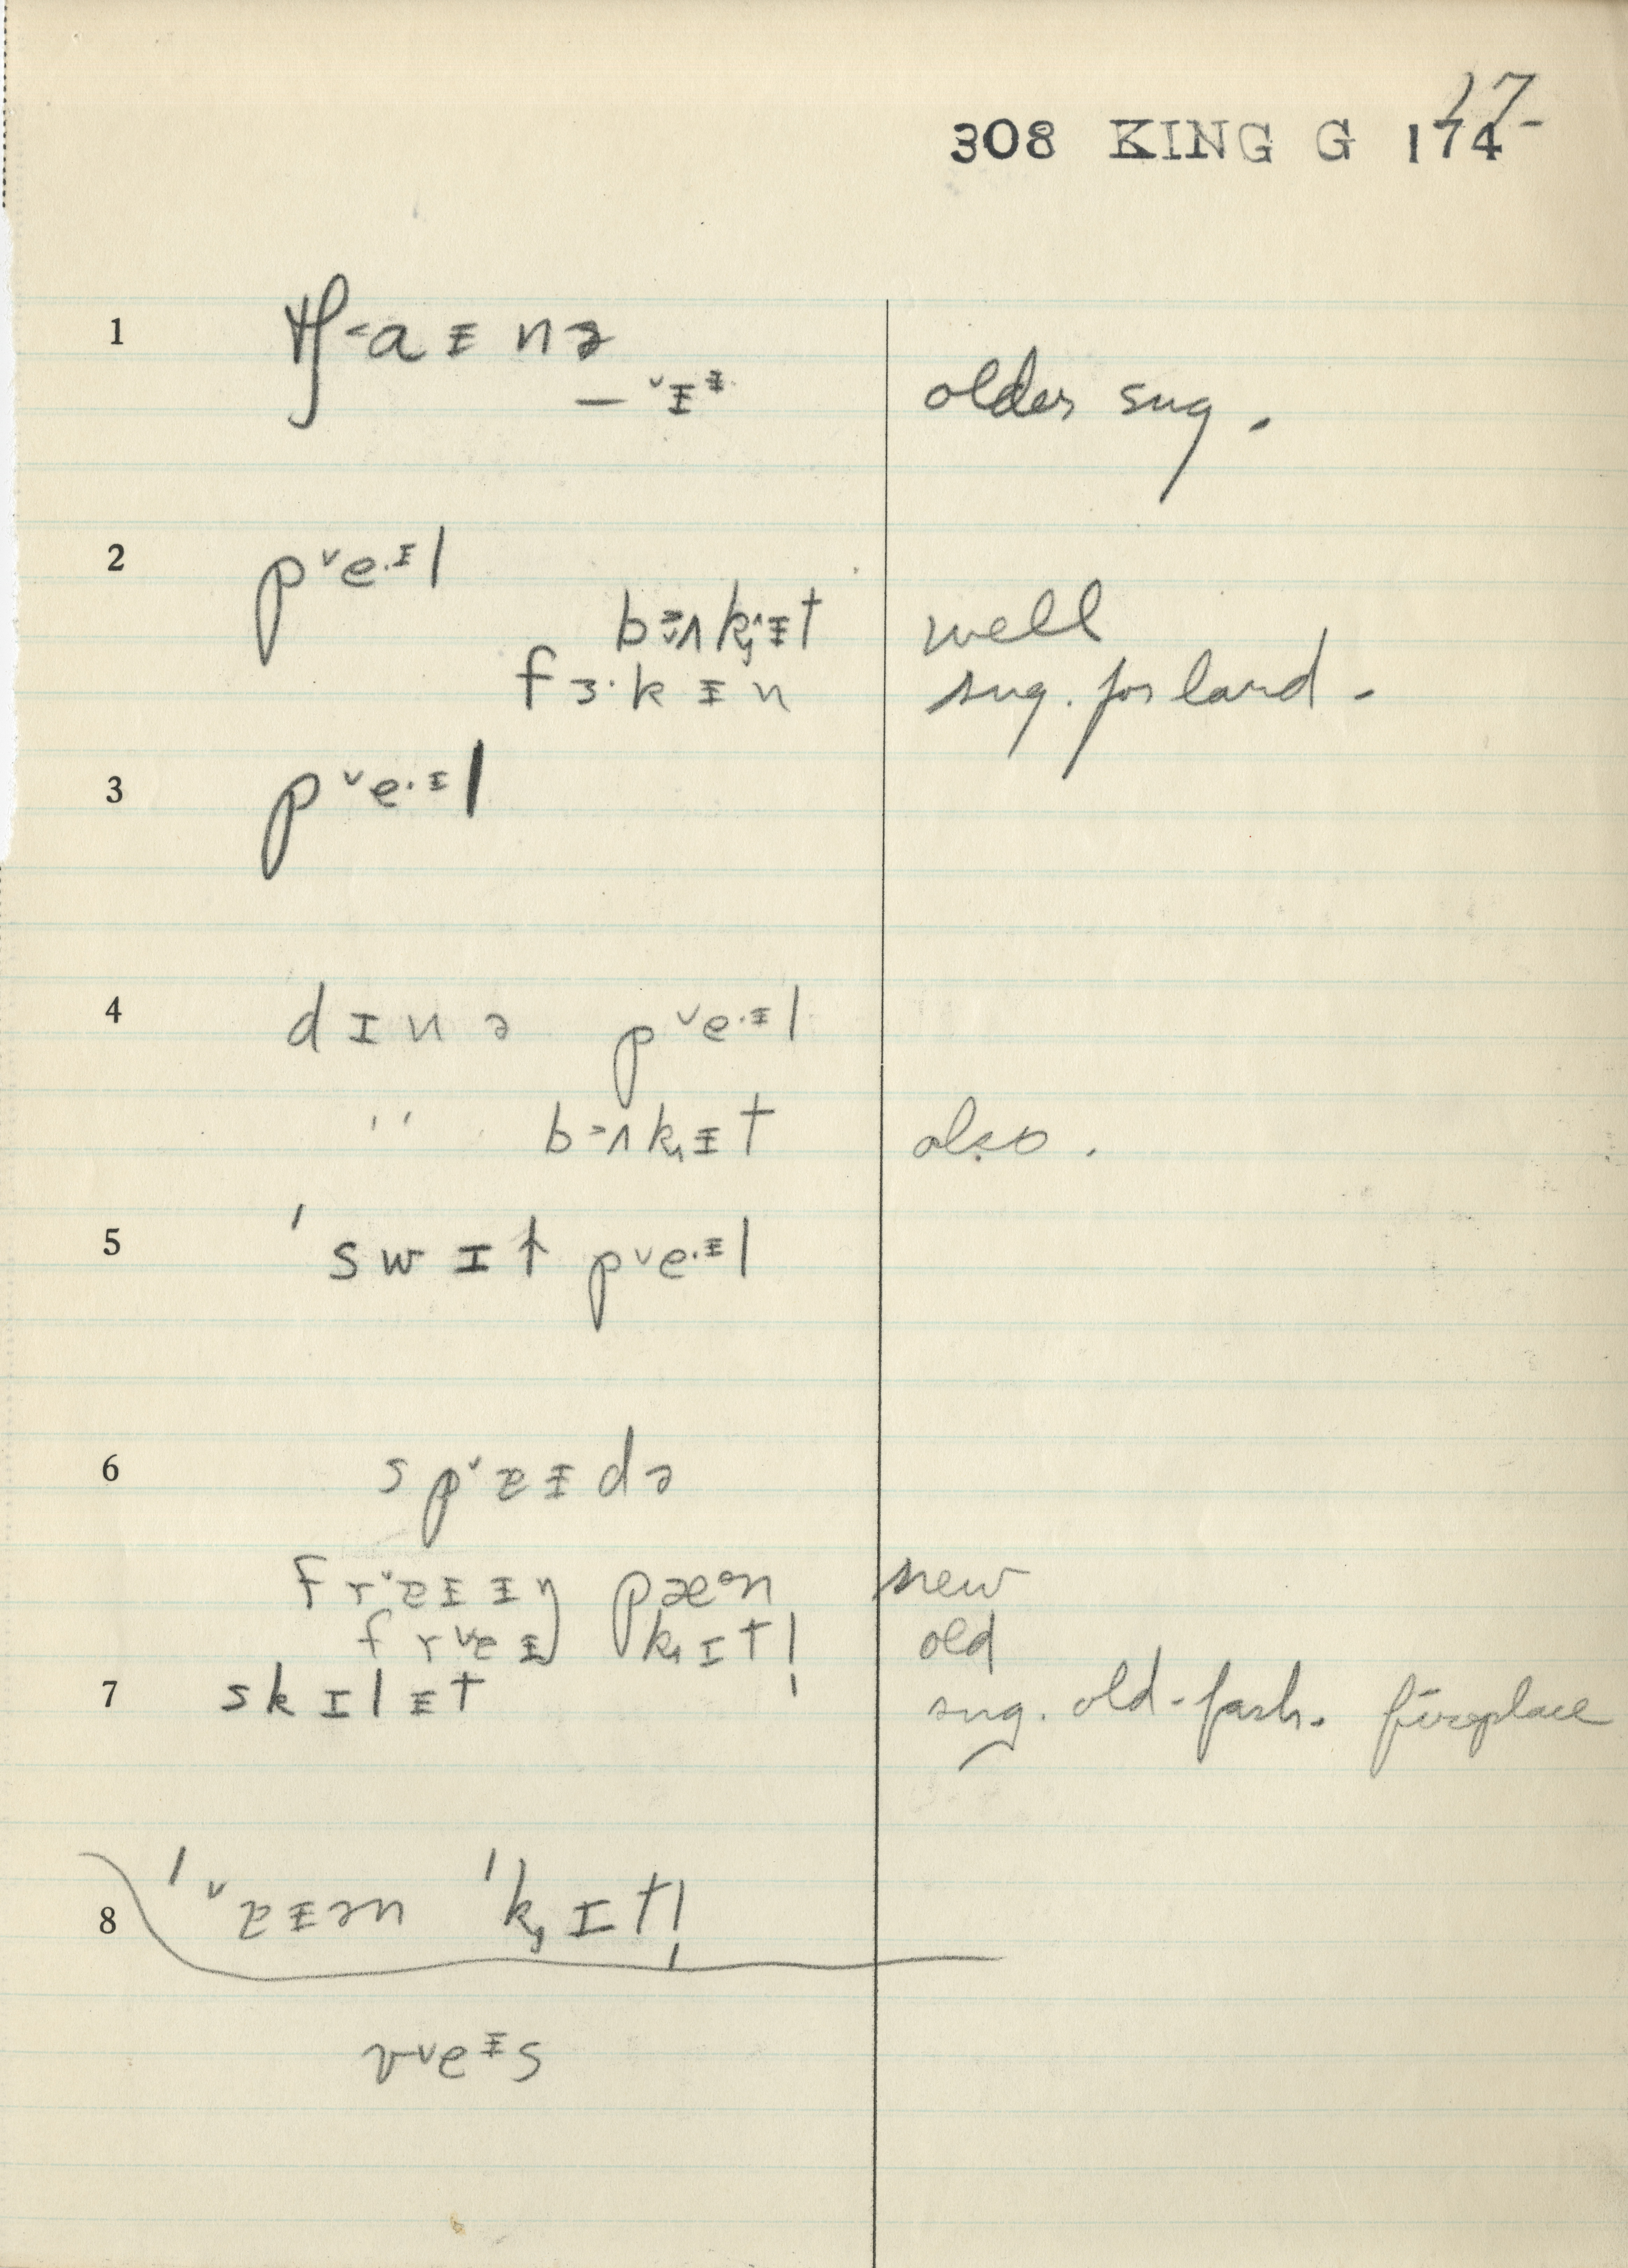 17
308 KING G 174
1 tʃ-aɪnə
— ˅ɪᵻ older sug.
2 p˅e·ᵻl
bʌkɪt well
fɜ·kɪn sug. for lard.
3 p˅e·ᵻl
4 dɪnə p˅e·ᵻl
" bʌkɪt also.
5 'swɪt p˅e·ᵻl
6 sp˅ɐɪdə
fr˅ɐɪɪŋ pæᵊn new
fr˅ɐɪŋ kɪtl̩ old
7 skɪlɪt sug. old-fash. fireplace
8 '˅ɐɪən 'kɪtl̩
v˅eᵻs